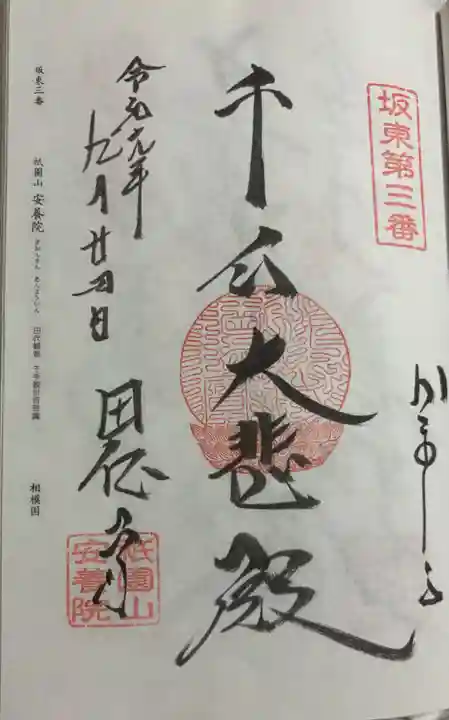 坂東第三番
千手大悲殿
令和元年
九月廿四日
田代寺
祇園山
安養院
坂東三番 祇園山 安養院 ぎおんさん あんよういん 田代観音 千手観世音菩薩 相模国